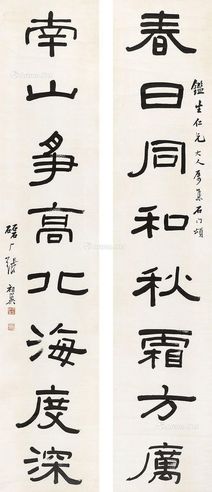 春日同和秋霜方厲
鑑生仁兄大人屬集石门頌
南山爭高北海度深